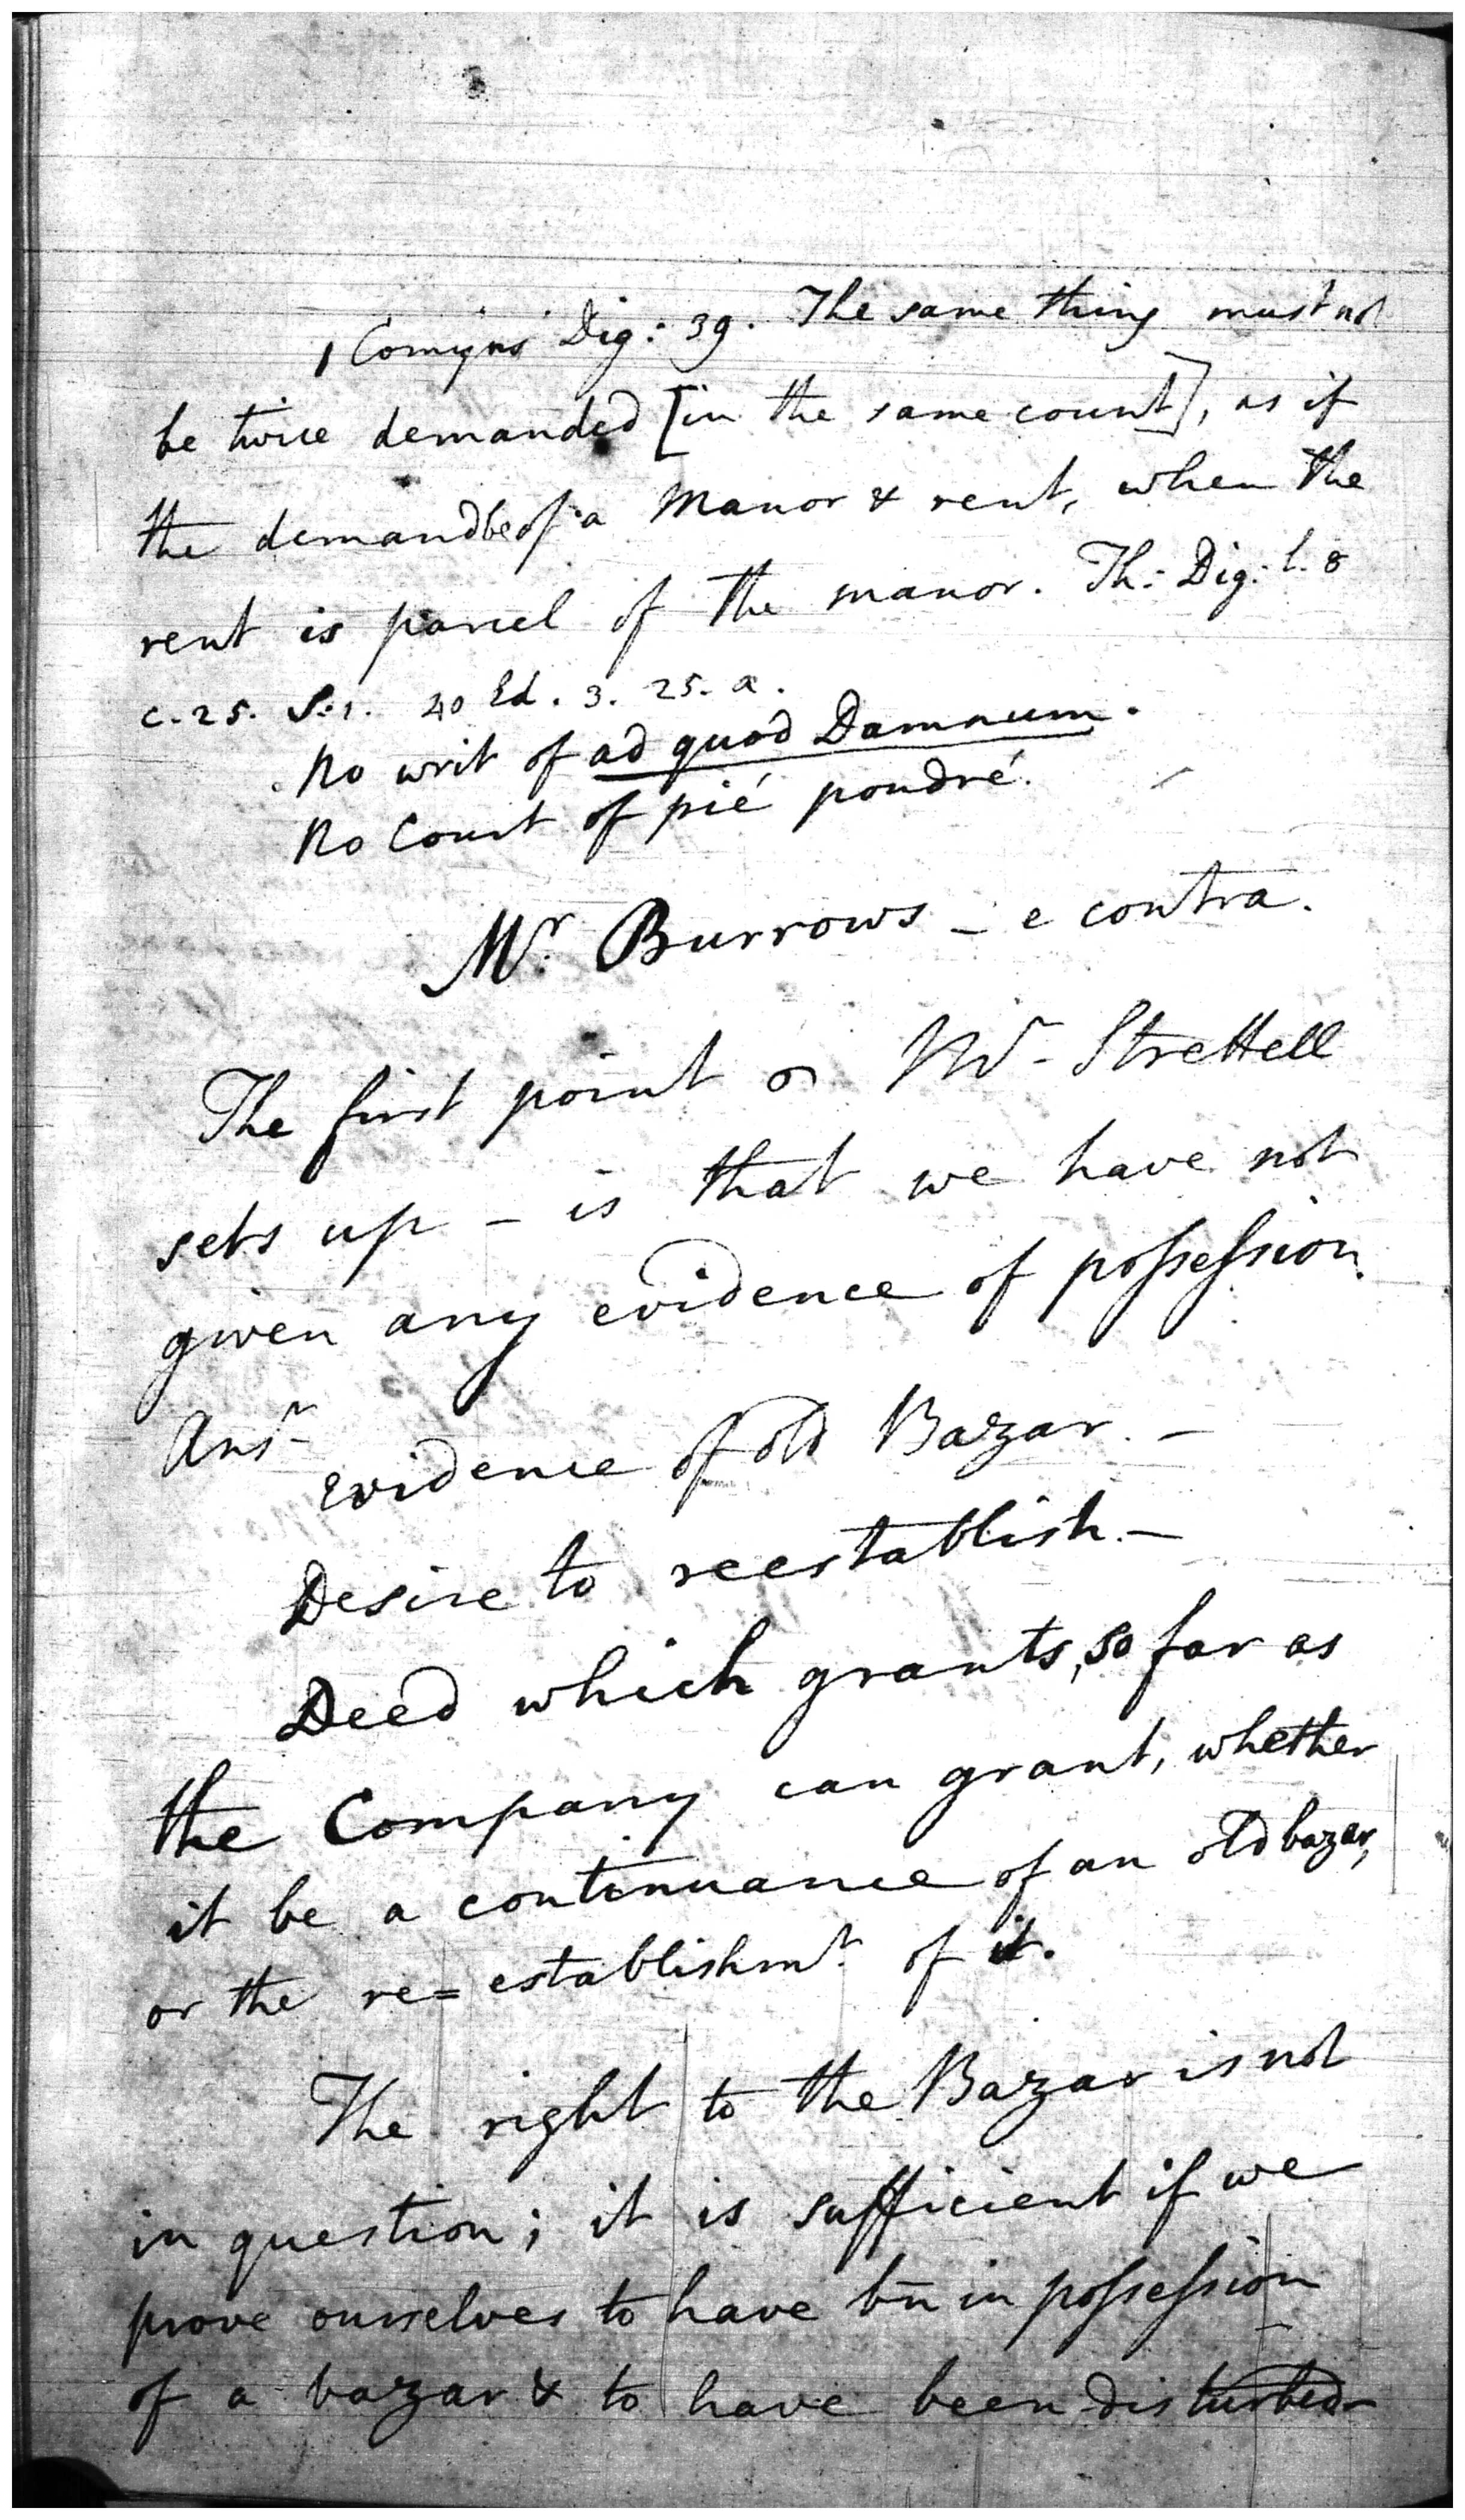 1 Comyns' Dig: 39. The same thing must not
be twice demanded [in the same count], as if
the demand be of a Manor & rent, when the
rent is parcel of the manor. Th: Dig: l. 8
c. 25. S: 1. 40 Ed. 3. 25. a.
No writ of ad quod Damnum.
No Court of pié poudré.
Mr. Burrows - e contra.
The first point Mr. Strettell
sets up - is that we have not
given any evidence of possession.
Ansr.
Evidence of old Bazar. -
Desire to reestablish. -
Deed which grants, so far as
the Company can grant, whether
it be a continuance of an old bazar,
or the re=establishmt. of it.
The right to the Bazar is not
in question; it is sufficient if we
prove ourselves to have bn in possession
of a bazar & to have been disturbed